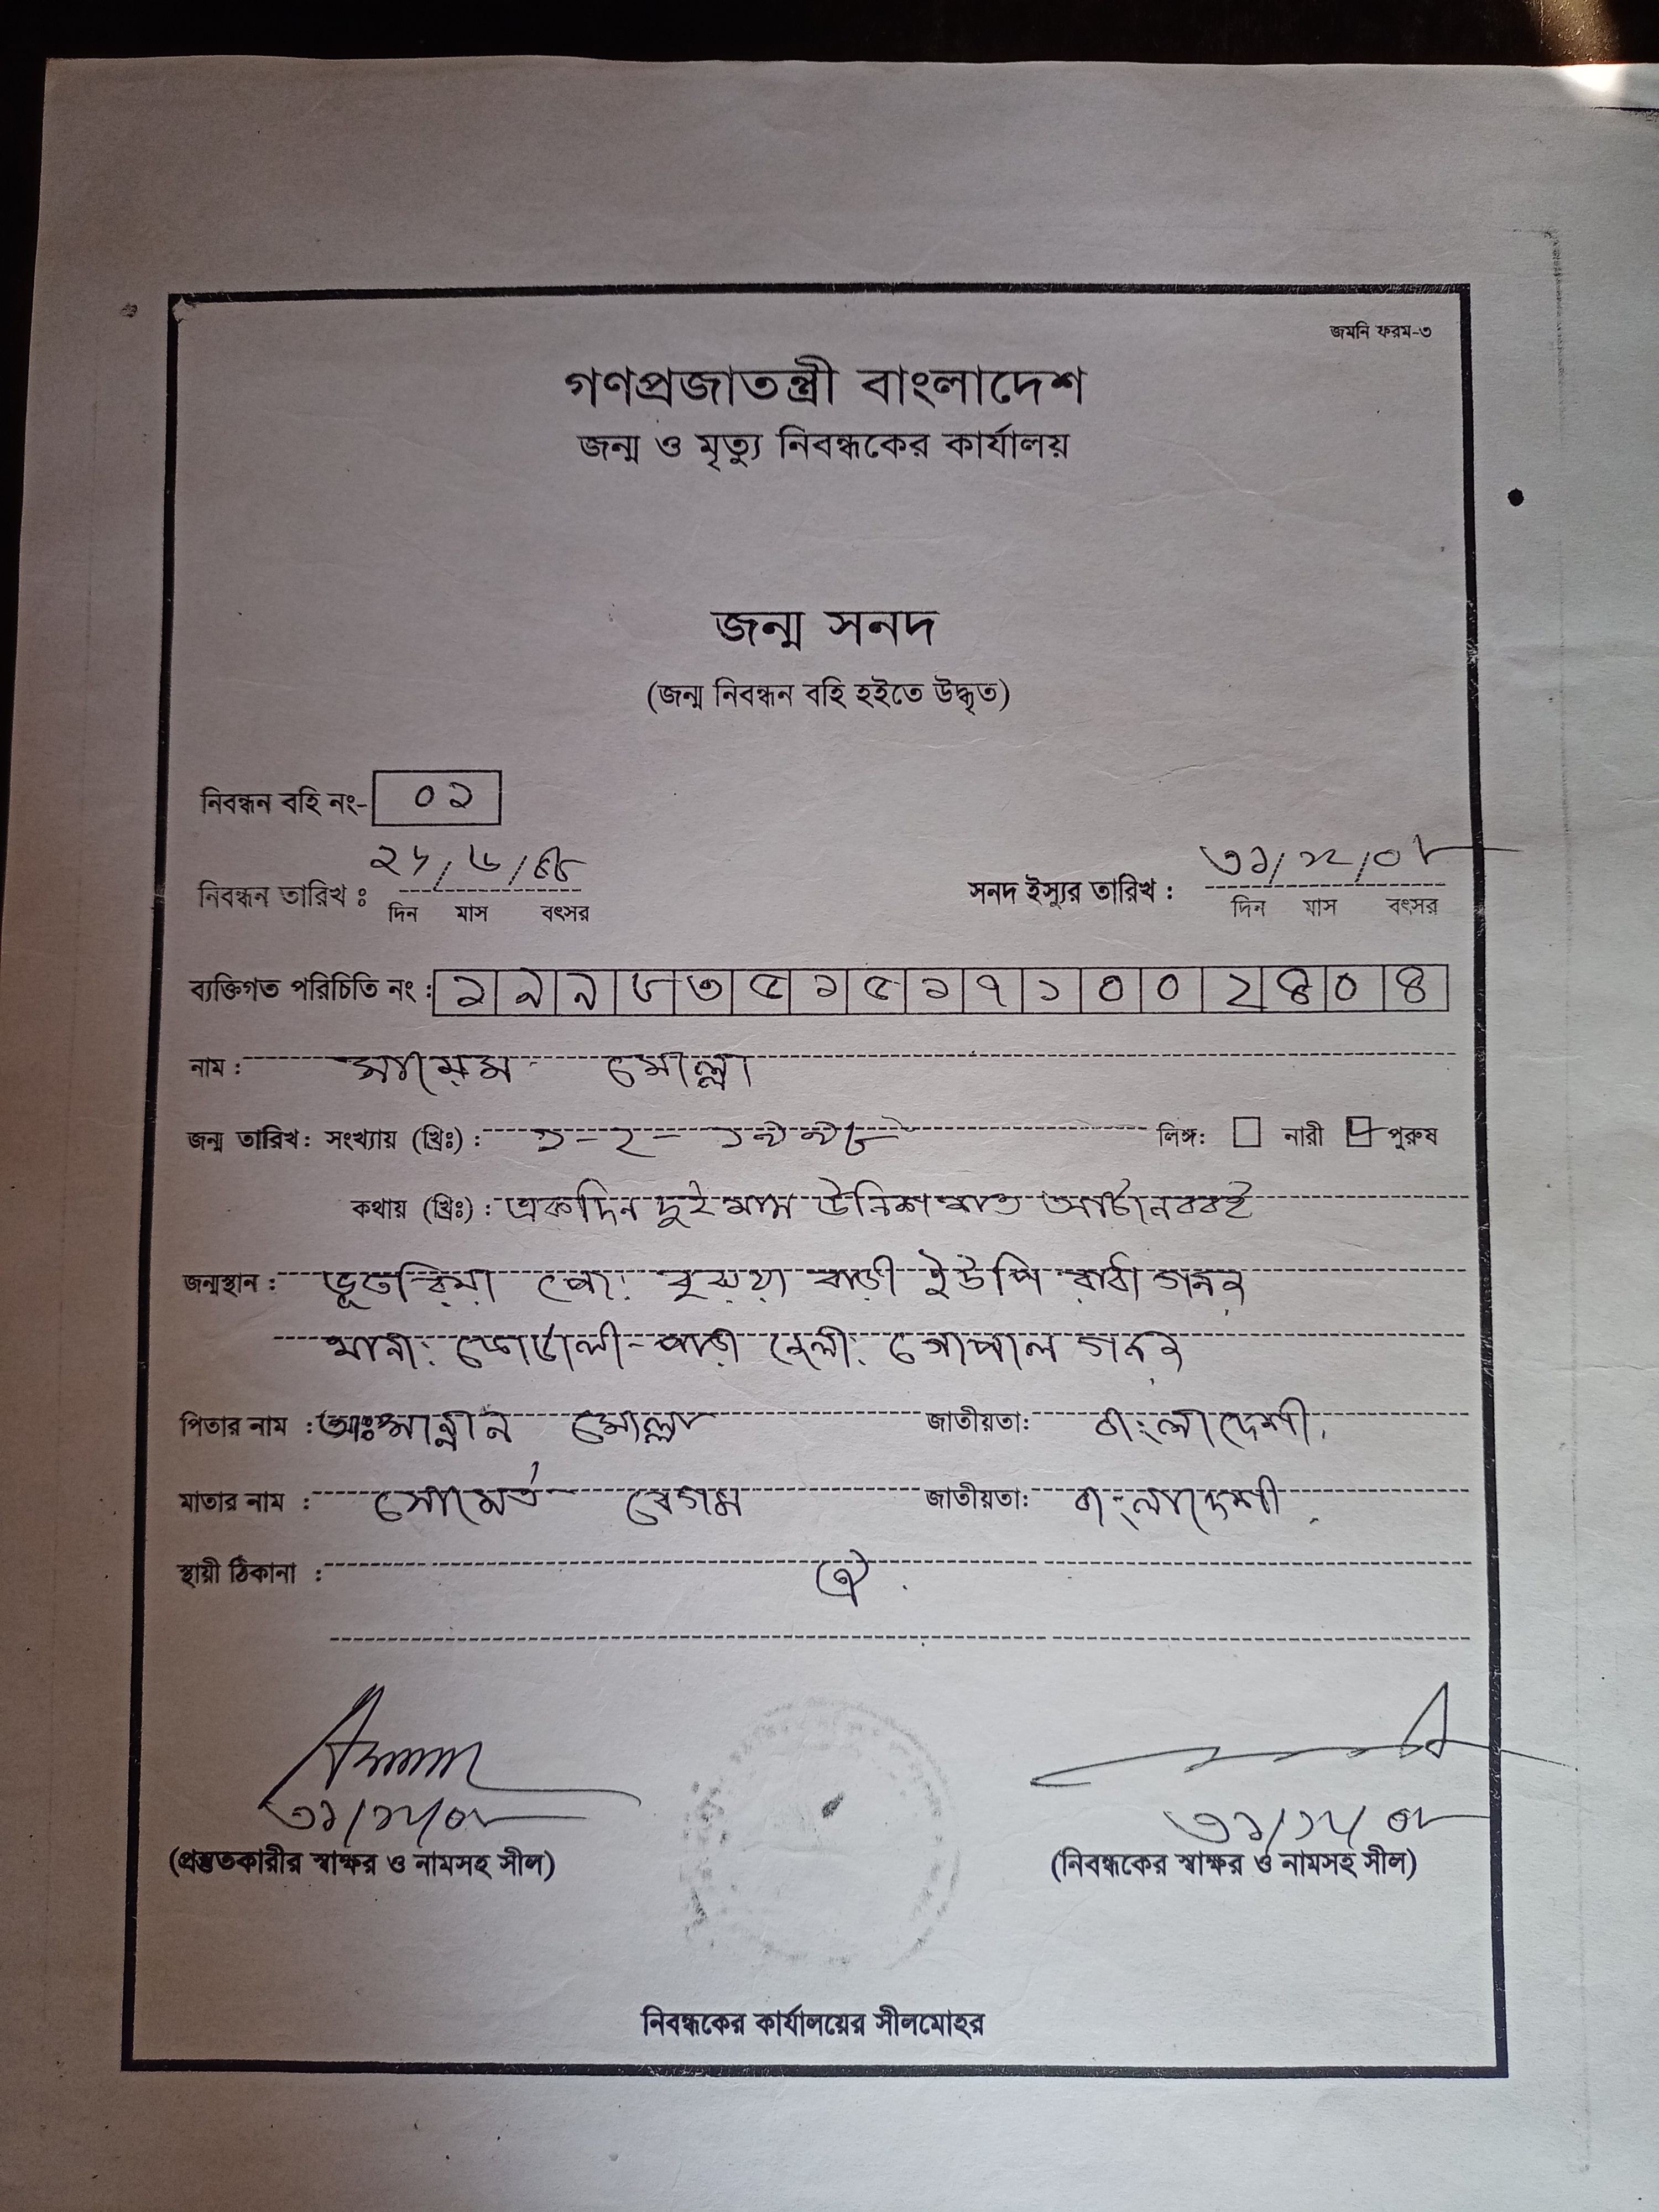 জমনি ফরম-৩
গণপ্রজাতন্ত্রী বাংলাদেশ
জন্ম ও মৃত্যু নিবন্ধকের কার্যালয়
জন্ম সনদ
(জন্ম নিবন্ধন বহি হইতে উদ্ধৃত)
নিবন্ধন বহি নং- ০২
নিবন্ধন তারিখ ঃ সনদ ইস্যুর তারিখ : ৩১/১২/০৮
দিন মাস বৎসর দিন মাস বৎসর
ব্যক্তিগত পরিচিতি নং : ১৯৯৮৩৫১৫১৭১০০২৪০৪
নাম : সায়েম মোল্লা
জন্ম তারিখ: সংখ্যায় (খ্রিঃ) : ১-২-১৯৯৮ লিঙ্গ: নারী পুরুষ
কথায় (খ্রিঃ) : একদিন দুই মাস উনিশ শত আটানববই
জন্মস্থান : পো: বাড়ী ইউপি
থানা: গোপাল গঞ্জ
পিতার নাম : আঃ মান্নান মোল্লা জাতীয়তা: বাংলাদেশী
মাতার নাম : বেগম জাতীয়তা: বাংলাদেশী
স্থায়ী ঠিকানা : ঐ
৩১/১২/০৮ ৩১/১২/০৮
(প্রস্তুতকারীর স্বাক্ষর ও নামসহ সীল) (নিবন্ধকের স্বাক্ষর ও নামসহ সীল)
নিবন্ধকের কার্যালয়ের সীলমোহর